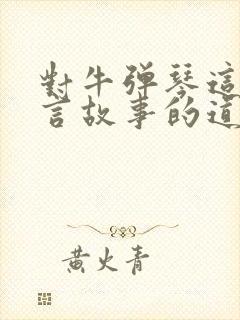 對牛弹琴這
言故事的道
黄火青